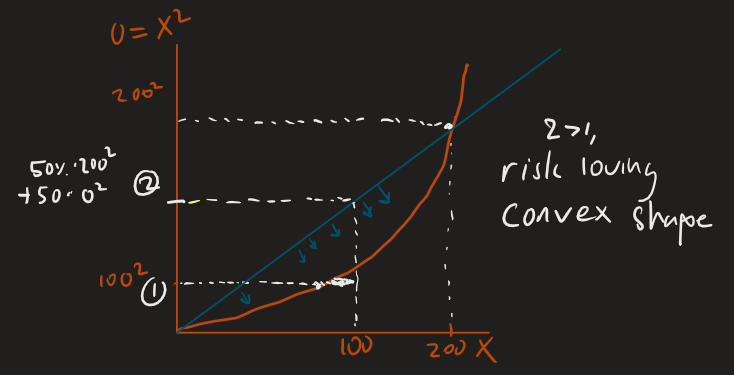 U = X²
200²
50% · 200²
+50 · 0²
②
100²
①
100
200 X
2>1,
risk loving
convex shape